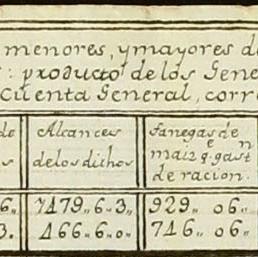 menores, y mayores de
: producto de los Gene
cuenta General, corr
de Alcances fanegas de
s de los dichos maiz q. e n gast
de racion.
6„ 7479„ 6„ 3„ 929„ 06„
3. 466„ 6„ 0„ 746„ 06„